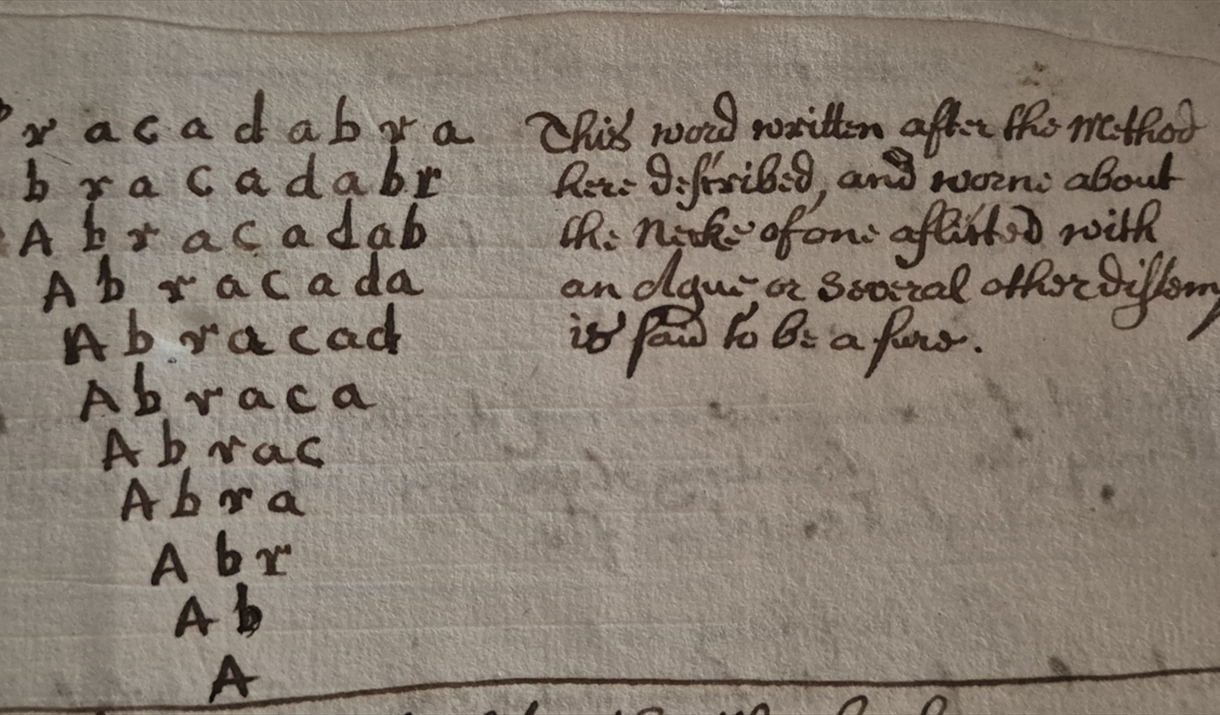 r a c a d a b r a
b r a c a d a b r
A b r a c a d a b
A b r a c a d a
A b r a c a d
A b r a c a
A b r a c
A b r a
A b r
A b
A
This word written after the Method
here described, and worne about
the Necke of one aflicted with
an Ague, or several other distem
is said to be a